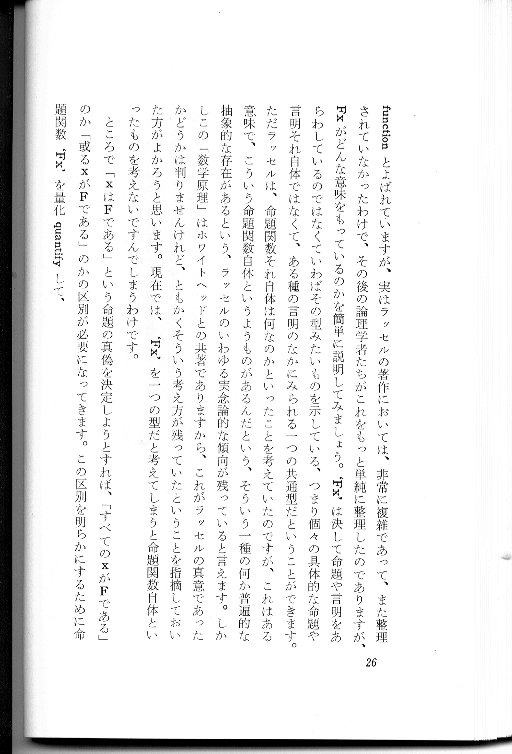 function とよばれていますが、実はラッセルの著作においては、非常に複雑であって、また整理
されていなかったわけで、その後の論理学者たちがこれをもっと単純に整理したのでありますが、
Fx がどんな意味をもっているのかを簡単に説明してみましょう。‘Fx’は決して命題や言明をあ
らわしているのではなくていわばその型みたいなものを示している、つまり個々の具体的な命題や
言明それ自体ではなくて、ある種の言明のなかにみられる一つの共通型だということができます。
ただラッセルは、命題関数それ自体は何なのかといったことを考えていたのですが、これはある
意味で、こういう命題関数自体というようなものがあるんだという、そういう一種の何か普遍的な
抽象的な存在があるという、ラッセルのいわゆる実念論的な傾向が残っていると言えます。しか
しこの「数学原理」はホワイトヘッドとの共著でありますから、これがラッセルの真意であった
かどうかは判りませんけれど、ともかくそういう考え方が残っていたということを指摘しておい
た方がよかろうと思います。現在では、‘Fx’を一つの型だと考えてしまうと命題関数自体とい
ったものを考えないですんでしまうわけです。
ところで「xはFである」という命題の真偽を決定しようとすれば、「すべてのxがFである」
のか「或るxがFである」のかの区別が必要になってきます。この区別を明らかにするために命
題関数‘Fx’を量化 quantify して、
26